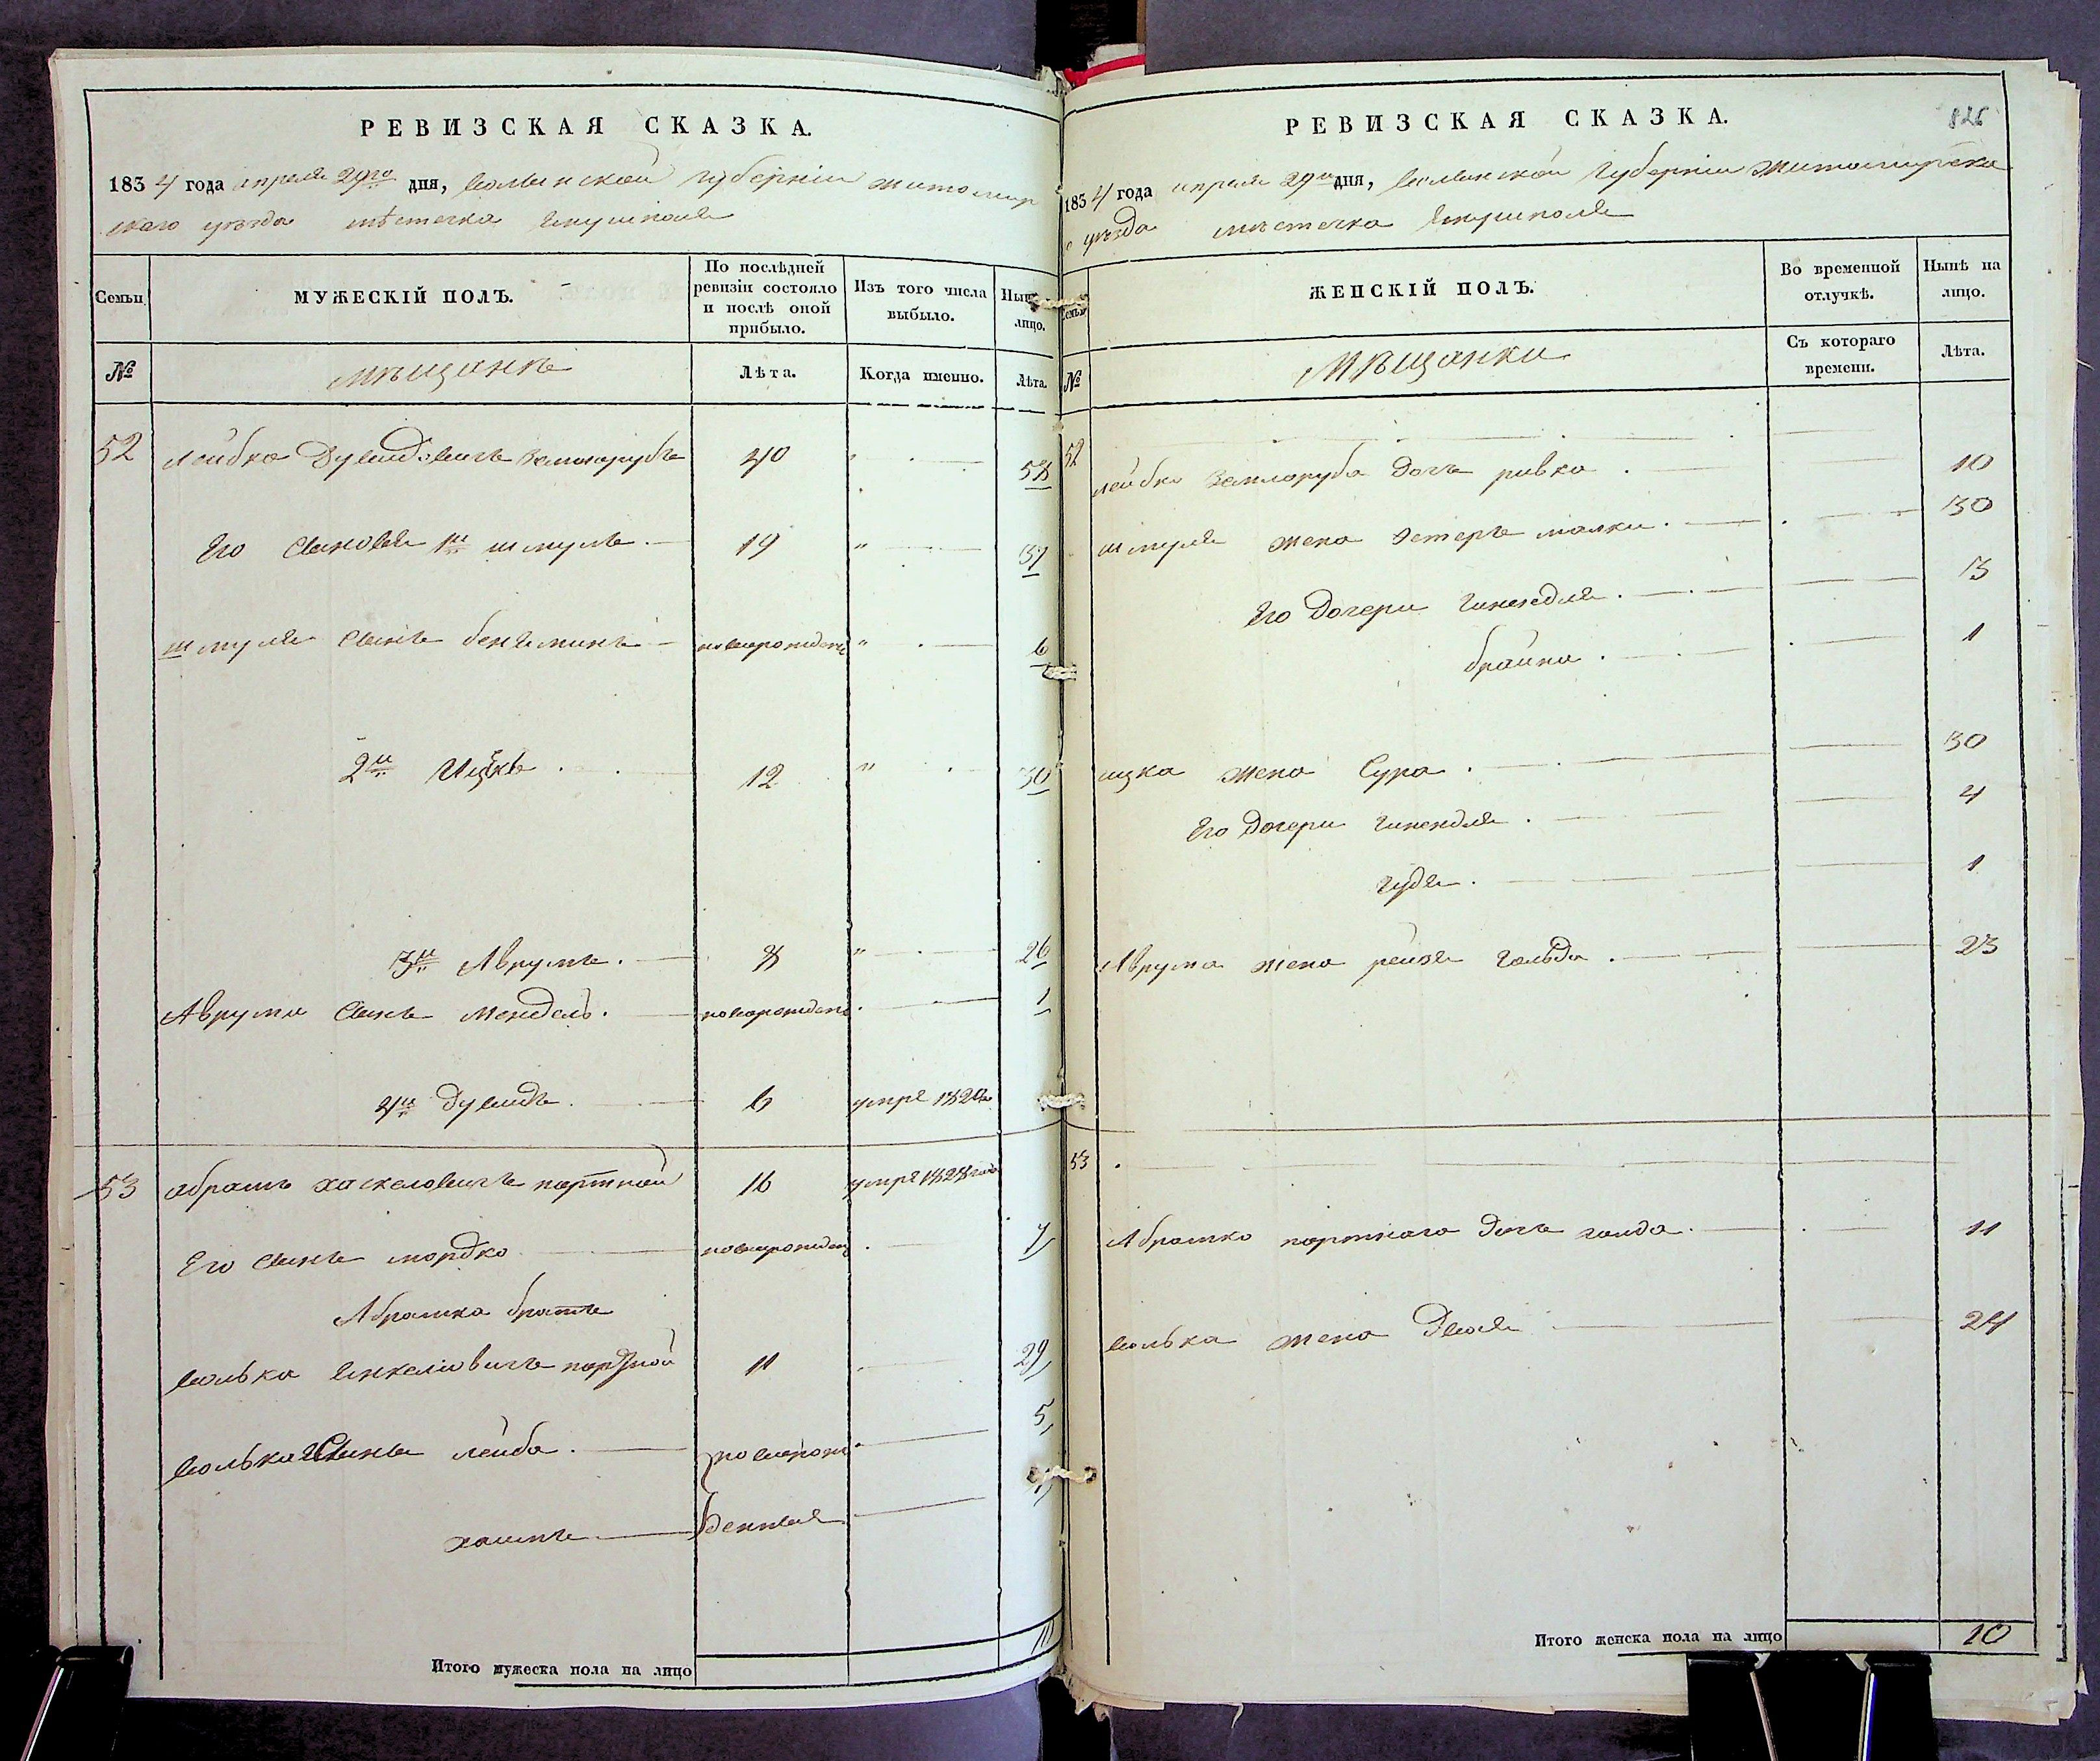 РЕВИЗСКАЯ СКАЗКА.
1834 года апреля 29го дня, Волынской губернии житомир
скаго уезда мѣстечка Янушполя
Семьи
МУЖЕСКІЙ ПОЛЪ.
По послѣдней ревизіи состояло и послѣ оной прибыло.
Изъ того числа выбыло.
лицо.
№
мѣщанѣ
Лѣта.
Когда именно.
Лѣта.
52 Лейбко Дувидовичъ 40 " 58
Его Сыновья 1й шмуль 19 " 37
шмуля Сынъ бенеминъ новорожден " 6
2й Ицкъ 12 " 30
3й Аврумъ 8 " 26
Аврума Сынъ Мендель новорожден 1
4й Дувидъ 6 умре
53 абрамъ хаскеловичъ портной 16 умре 1828 года
Его Сынъ мордко новорожден 7
Абрамка братъ
волька портной 11 29
волька Сыны лейба новорож 5
хаимъ денные
Итого мужеска пола на лицо
РЕВИЗСКАЯ СКАЗКА.
826
1834 года апреля 29 дня, Волынской Губернии Житомирска
уезда мѣстечка Янушполя
ЖЕНСКІЙ ПОЛЪ.
Во временной отлучкѣ.
Нынѣ на лицо.
№
Мѣщанки
Съ котораго времени.
Лѣта.
52
лейбко дочь ривка 10
шмуля жена Эстеръ малки 30
Его Дочери Гинендля 13
брайна 1
ицка жена Сура 30
Его Дочери Гинендля 4
Гудя 1
Аврума жена рейзя Гольда 23
53
Абрамко портнаго дочь голда 11
волька жена Двося 24
Итого женска пола на лицо 10